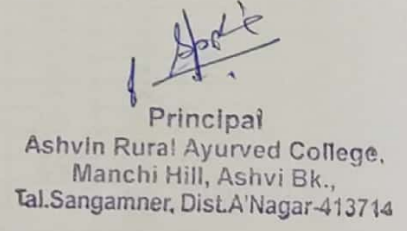 Principal
Ashvin Rural Ayurved College,
Manchi Hill, Ashvi Bk.,
Tal.Sangamner, Dist.A'Nagar-413714